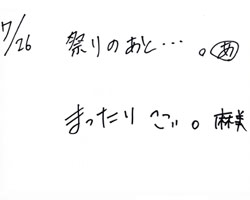 7/26 祭りのあと…。あ
まったり こい。麻美